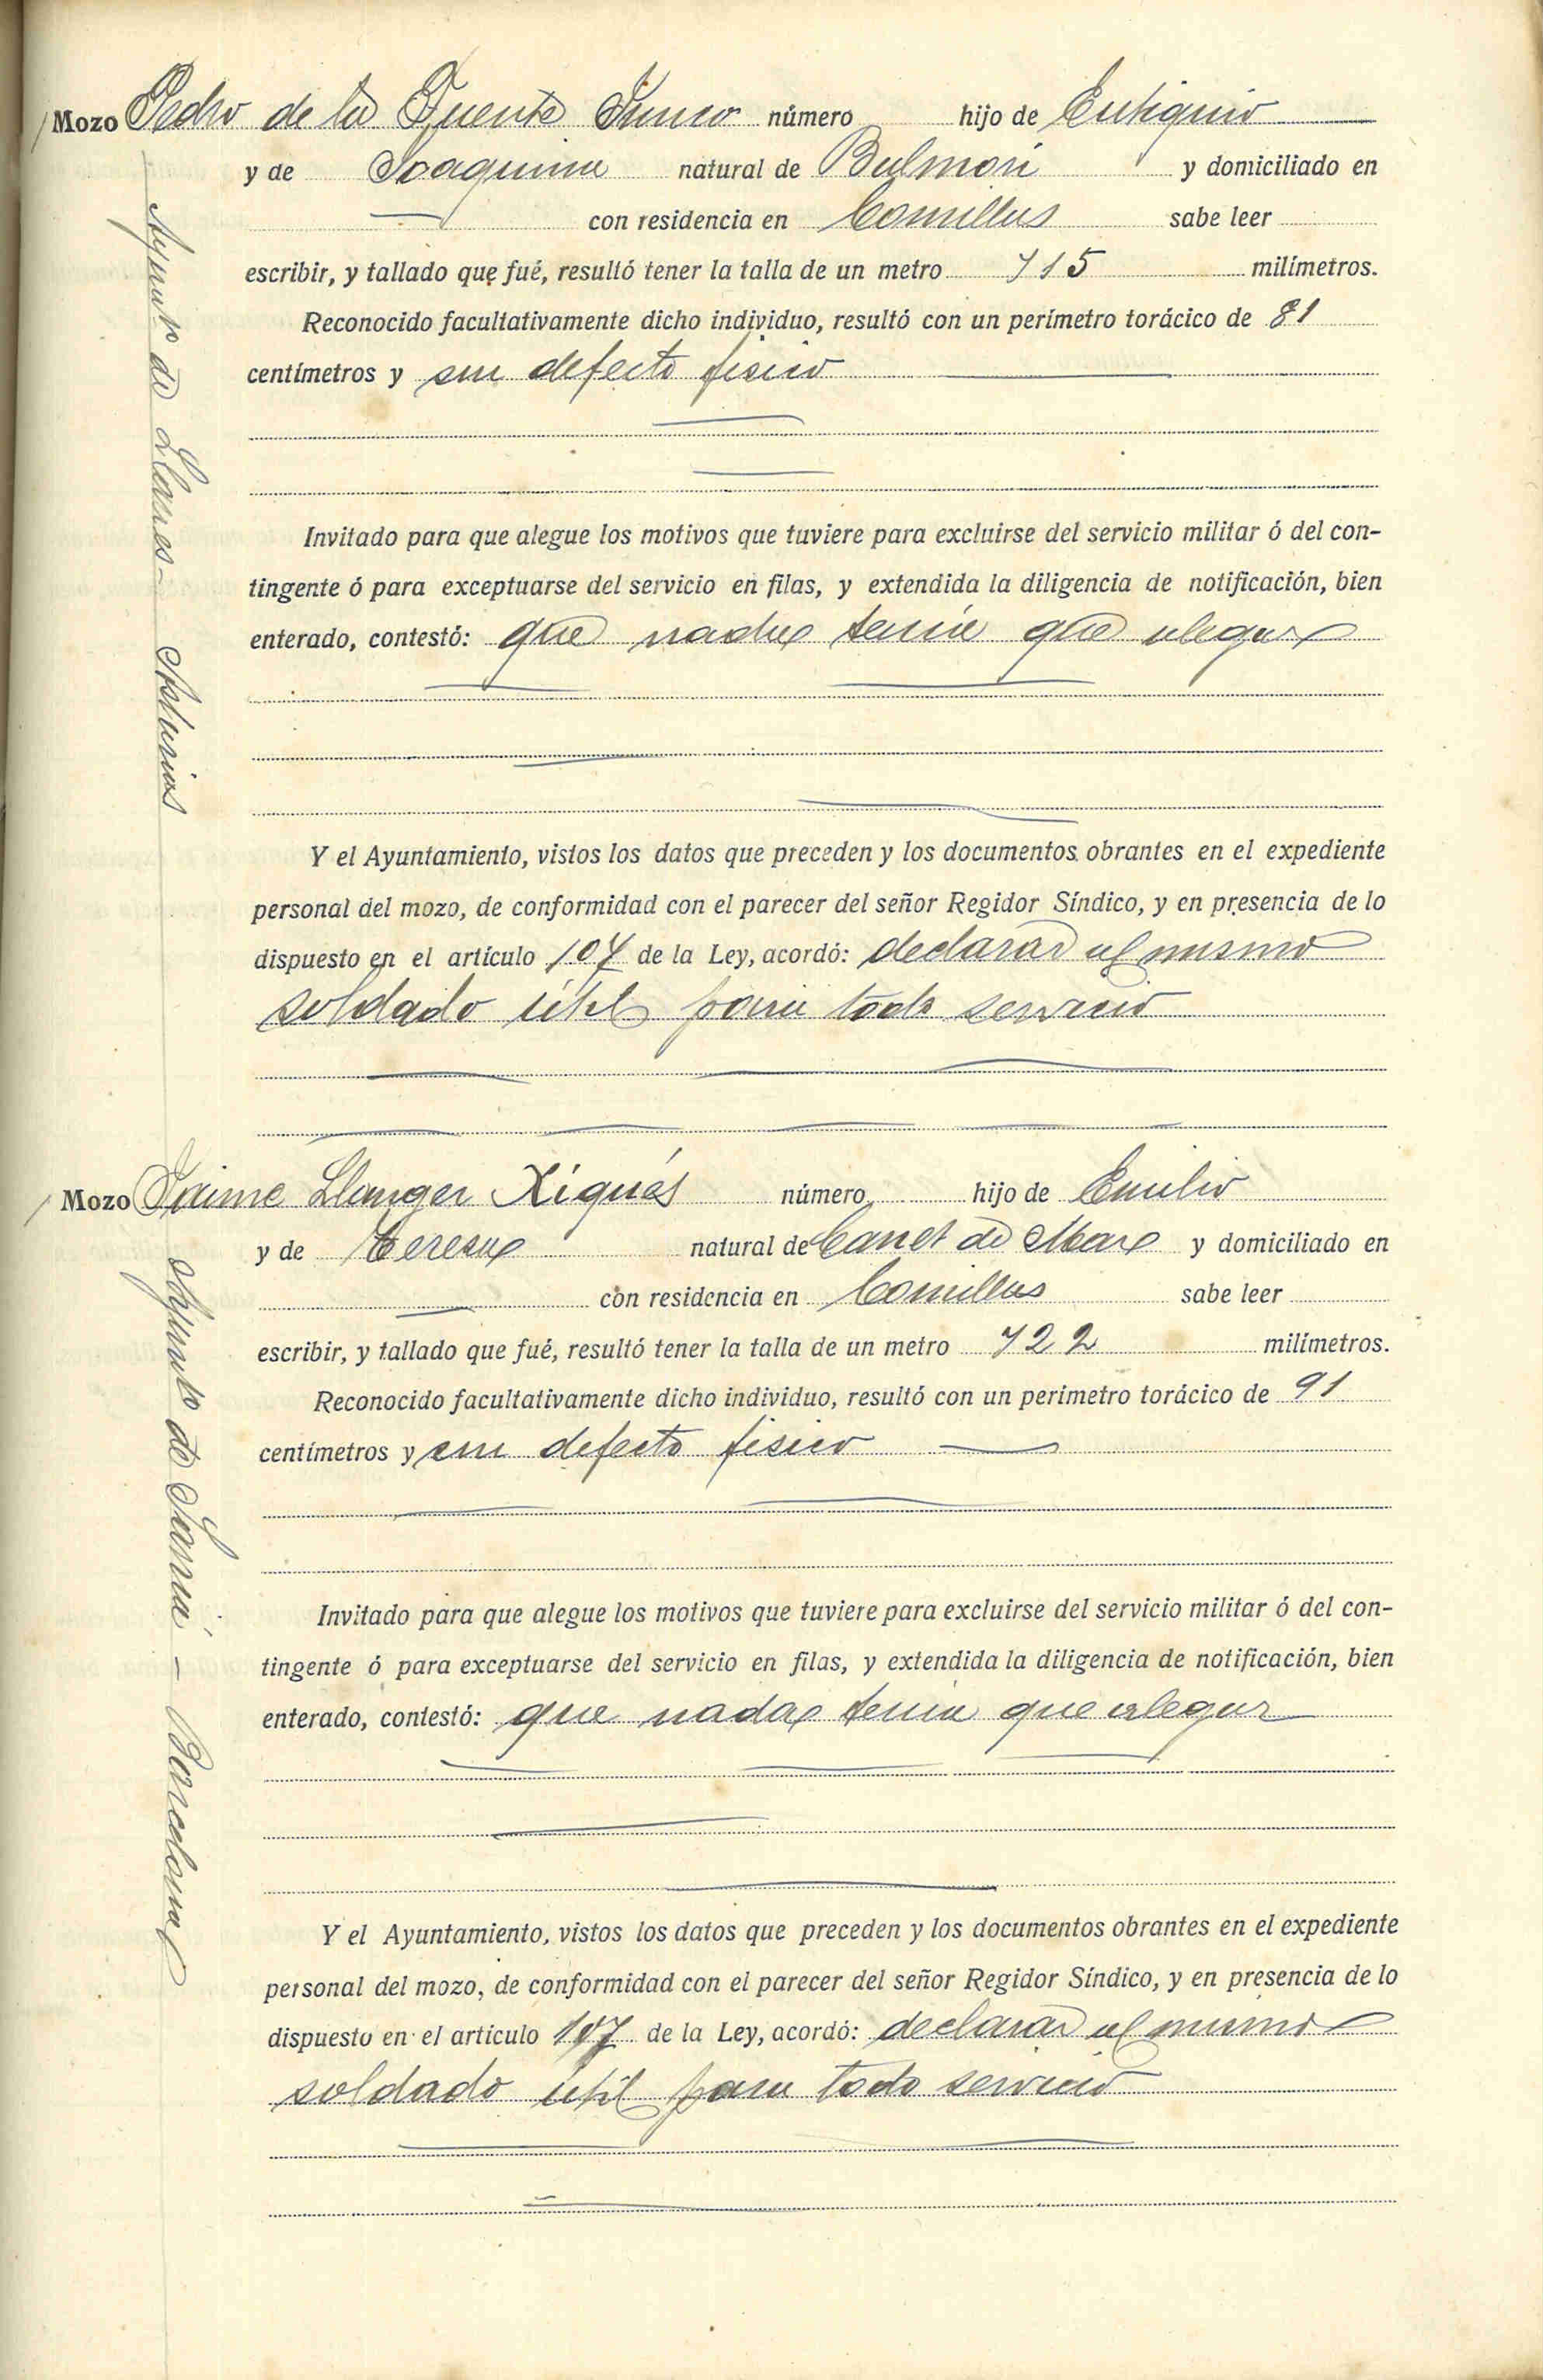 Mozo Pedro de la Fuente Junco número hijo de Eutiquio
y de Joaquina natural de Balmori y domiciliado en
con residencia en Comillas sabe leer
escribir, y tallado que fué, resultó tener la talla de un metro 715 milímetros.
Reconocido facultativamente dicho individuo, resultó con un perímetro torácico de 81
centímetros y sin defecto fisico
Invitado para que alegue los motivos que tuviere para excluirse del servicio militar ó del con-
tingente ó para exceptuarse del servicio en filas, y extendida la diligencia de notificación, bien
enterado, contestó: que nada tenia que alegar
Y el Ayuntamiento, vistos los datos que preceden y los documentos obrantes en el expediente
personal del mozo, de conformidad con el parecer del señor Regidor Síndico, y en presencia de lo
dispuesto en el artículo 107 de la Ley, acordó: declarar al mismo
soldado útil para todo servicio
Ayunto de Llanes - Asturias
Mozo Jaime Llauger Xiqués número hijo de Emilio
y de Teresa natural de Canet de Mar y domiciliado en
con residencia en Comillas sabe leer
escribir, y tallado que fué, resultó tener la talla de un metro 722 milímetros.
Reconocido facultativamente dicho individuo, resultó con un perímetro torácico de 91
centímetros y sin defecto fisico
Invitado para que alegue los motivos que tuviere para excluirse del servicio militar ó del con-
tingente ó para exceptuarse del servicio en filas, y extendida la diligencia de notificación, bien
enterado, contestó: que nada tenia que alegar
Y el Ayuntamiento, vistos los datos que preceden y los documentos obrantes en el expediente
personal del mozo, de conformidad con el parecer del señor Regidor Síndico, y en presencia de lo
dispuesto en el artículo 107 de la Ley, acordó: declarar al mismo
soldado útil para todo servicio
Ayunto de Sarriá - Barcelona